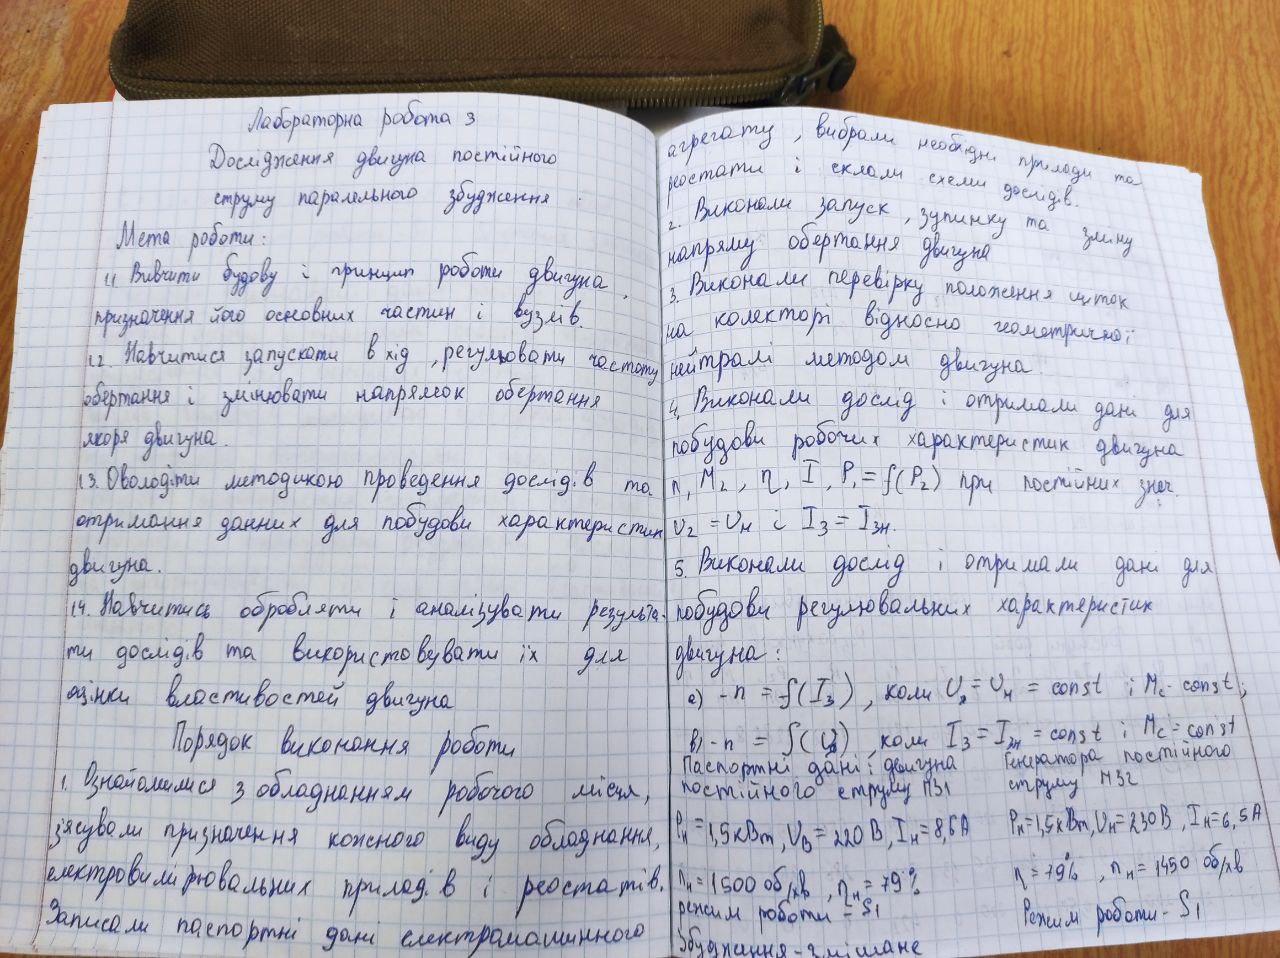 Лабораторна робота 3
Дослідження двигуна постійного
струму паралельного збудження.
Мета роботи:
1.1 Вивчити будову і принцип роботи двигуна,
призначення його основних частин і вузлів.
1.2. Навчитися запускати в хід, регулювати частоту
обертання і змінювати напрямок обертання
якоря двигуна.
1.3. Оволодіти методикою проведення дослідів та
отримання данних для побудови характеристик
двигуна.
1.4. Навчитись обробляти і аналізувати результа-
ти дослідів та використовувати їх для
оцінки властивостей двигуна
Порядок виконання роботи
1. Ознайомилися з обладнанням робочого місця,
з'ясували призначення кожного виду обладнання,
електровимірювальних приладів і реостатів.
Записали паспортні дані електромашинного
агрегату, вибрали необхідні прилади та
реостати і склали схеми дослідів.
2. Виконали запуск, зупинку та зміну
напряму обертання двигуна
3. Виконали перевірку положення щіток
на колекторі відносно геометричної
нейтралі методом двигуна.
4. Виконали дослід і отримали дані для
побудови робочих характеристик двигуна
n, M₂, η, I, P₁ = f(P₂) при постійних знач.
U₂ = Uн і I₃ = I₃н.
5. Виконали дослід і отримали дані для
побудови регулювальних характеристик
двигуна:
а) - n = f(I₃), коли U = Uн = const і Mс - const;
в) - n = f(U), коли I₃ = I₃н = const і Mс = const
Паспортні дані: двигуна
постійного струму П31
Pн = 1,5 кВт, Uв = 220 В, Iн = 8,6 А
nн = 1500 об/хв, ηн = 79%
режим роботи - S1
Збудження - змішане
Генератора постійного
струму П32
Pн = 1,5 кВт, Uн = 230 В, Iн = 6,5 А
η = 79%, nн = 1450 об/хв
Режим роботи - S1